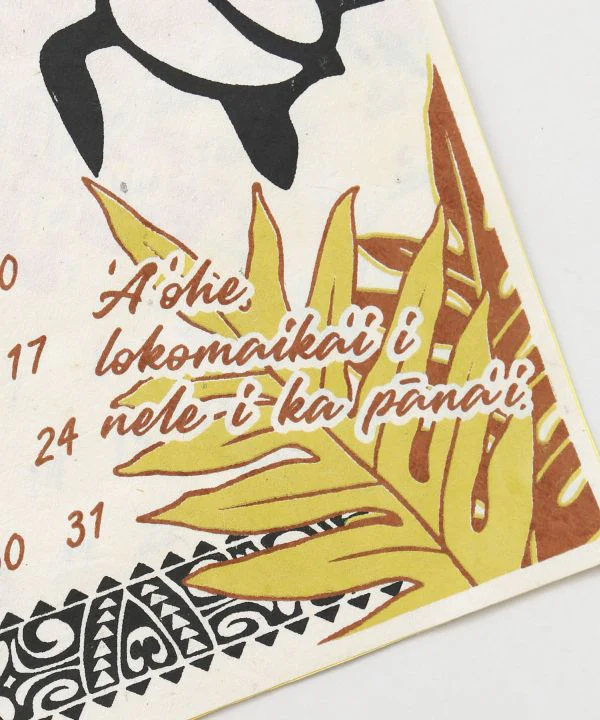 0
17
24
30 31
'A'ohe,
lokomaika'i i
nele i ka pāna'i.